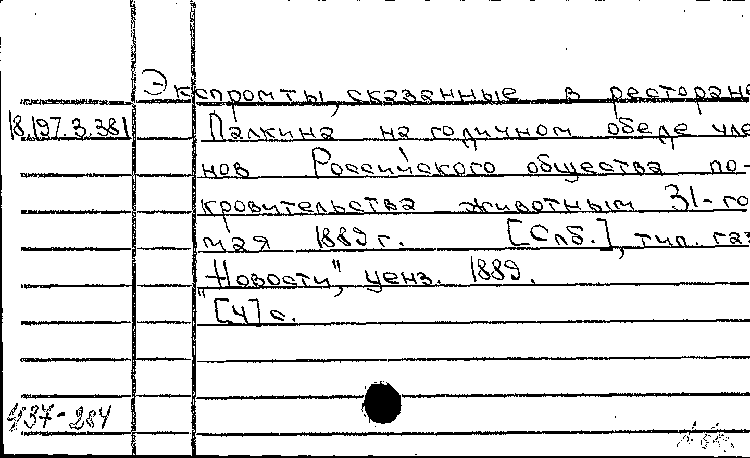 Экспромты, сказанные в ресторане
18.197.3.381 Палкина на годичном обеде чле-
нов Российского общества по-
кровительства животным 31-го
мая 1889 г. [Спб.], тип. газ.
"Новости", ценз. 1889.
[4] с.
437-284